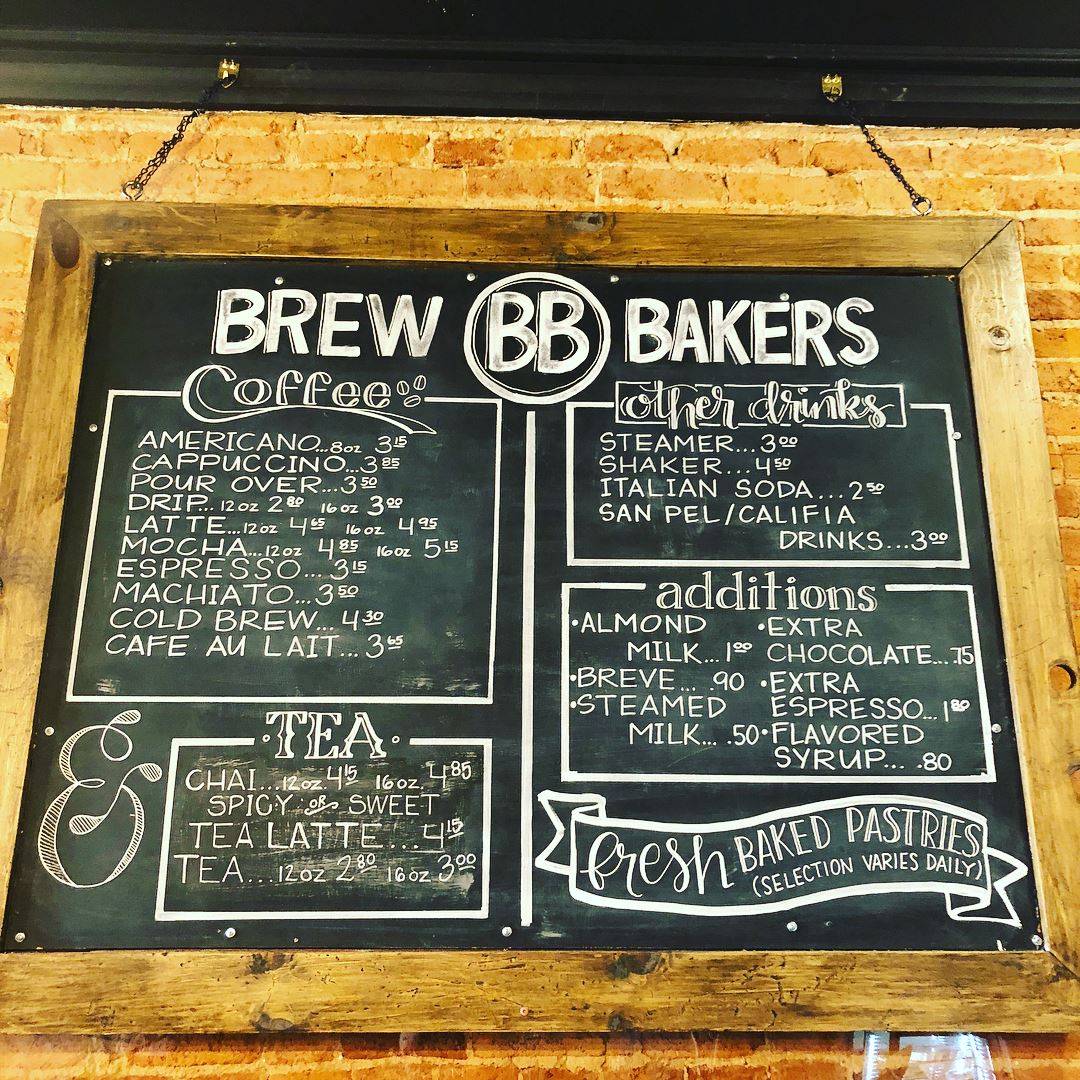 BREW BB BAKERS
Coffee
AMERICANO...8oz 3.15
CAPPUCCINO...3.85
POUR OVER...3.50
DRIP...12oz 2.80 16oz 3.00
LATTE...12oz 4.65 16oz 4.95
MOCHA...12oz 4.85 16oz 5.15
ESPRESSO...3.15
MACHIATO...3.50
COLD BREW...4.30
CAFE AU LAIT...3.65
&
·TEA·
CHAI...12oz 4.15 16oz. 4.85
SPICY or SWEET
TEA LATTE...4.15
TEA...12oz 2.80 16oz 3.00
other drinks
STEAMER...3.00
SHAKER...4.50
ITALIAN SODA...2.50
SAN PEL/CALIFIA
DRINKS...3.00
additions
•ALMOND
MILK...1.00
•BREVE... .90
•STEAMED
MILK... .50
•EXTRA
CHOCOLATE... .75
•EXTRA
ESPRESSO...1.80
•FLAVORED
SYRUP... .80
fresh BAKED PASTRIES
(SELECTION VARIES DAILY)